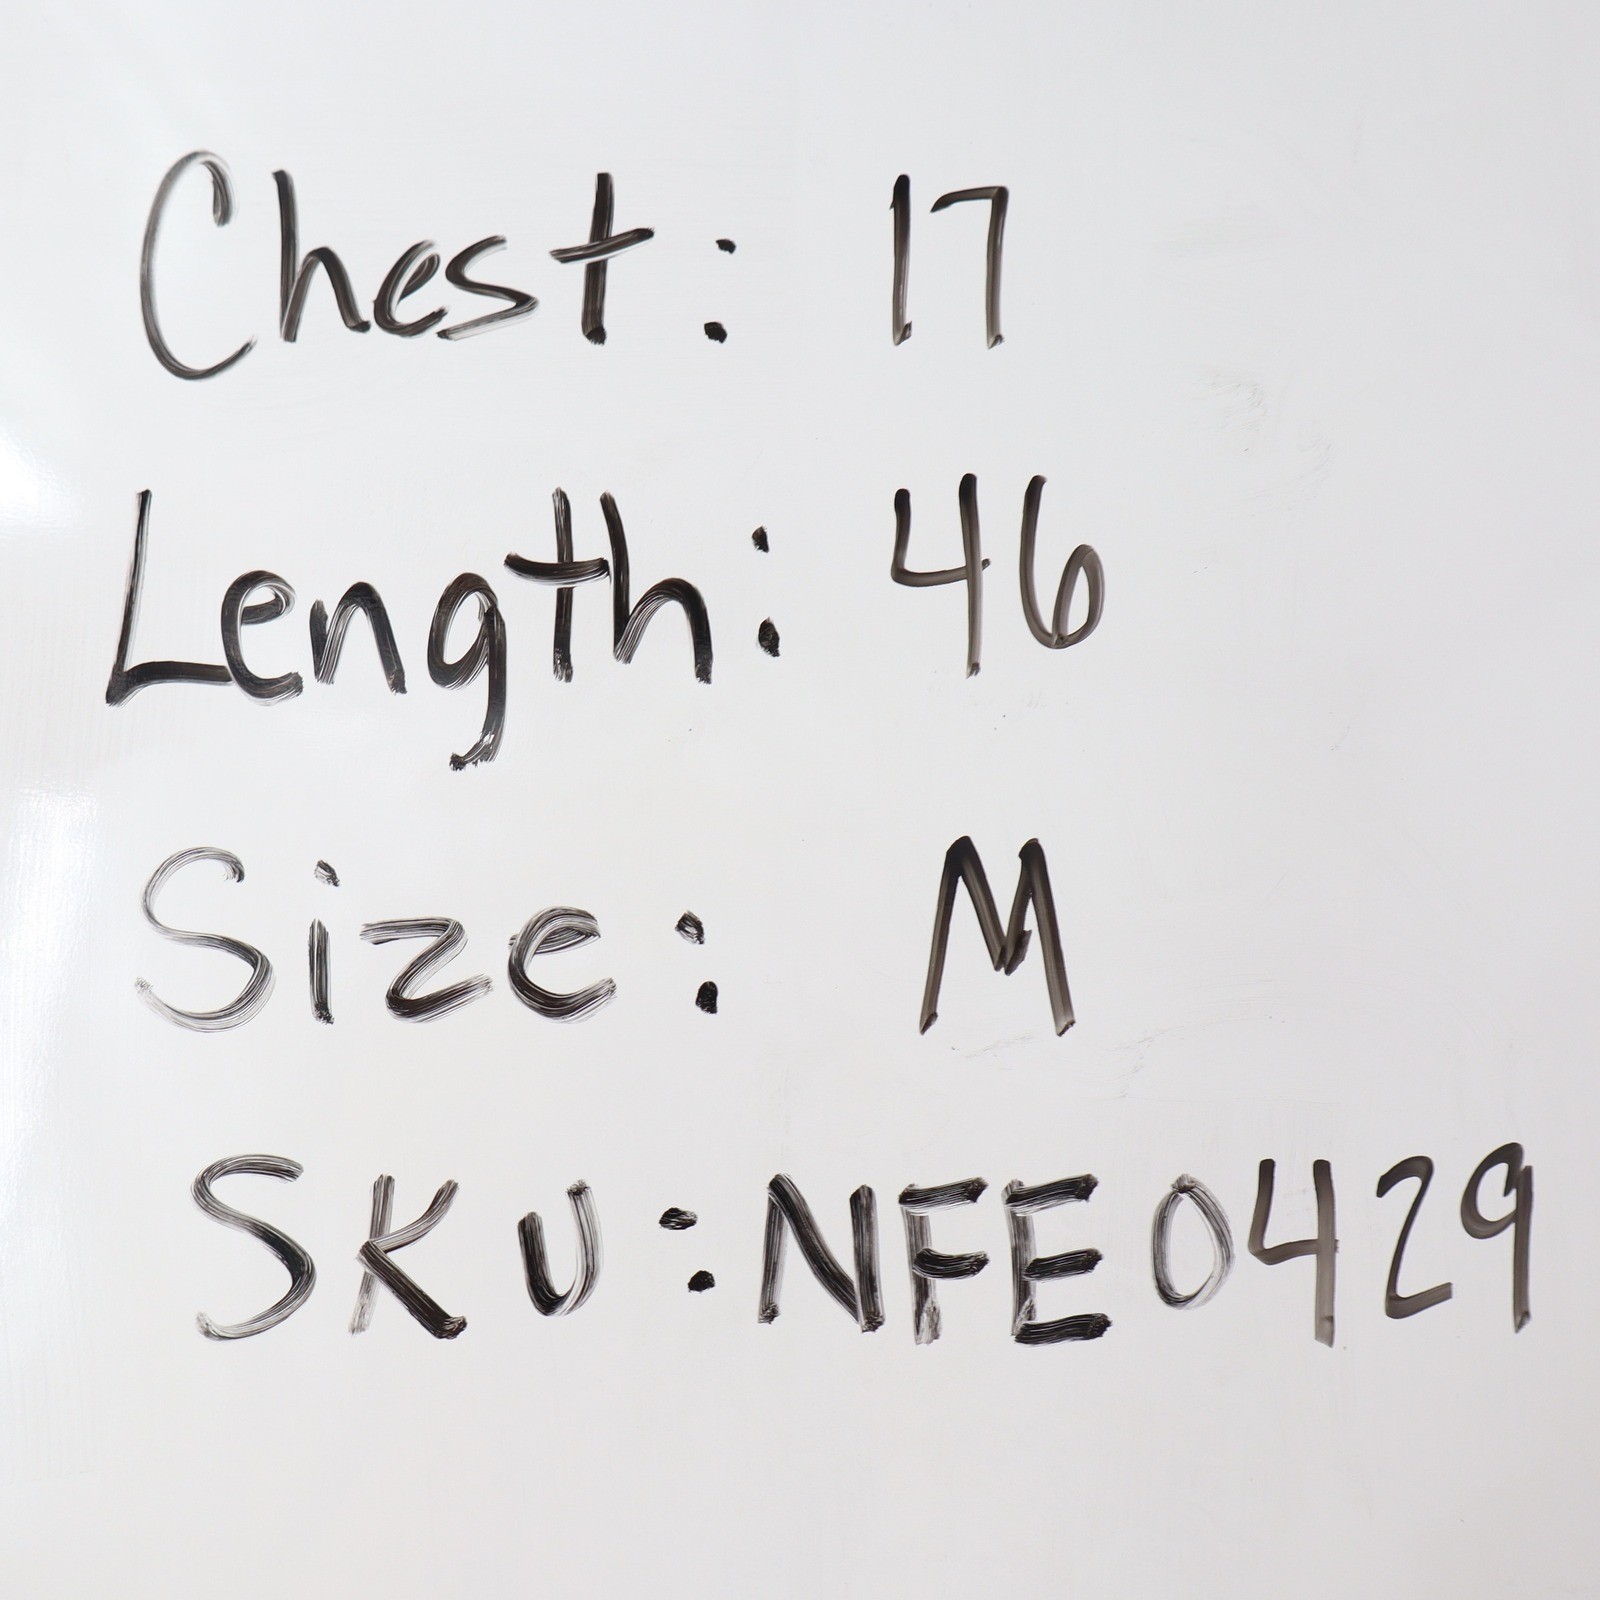 Chest: 17
Length: 46
Size: M
SKU: NFE0429